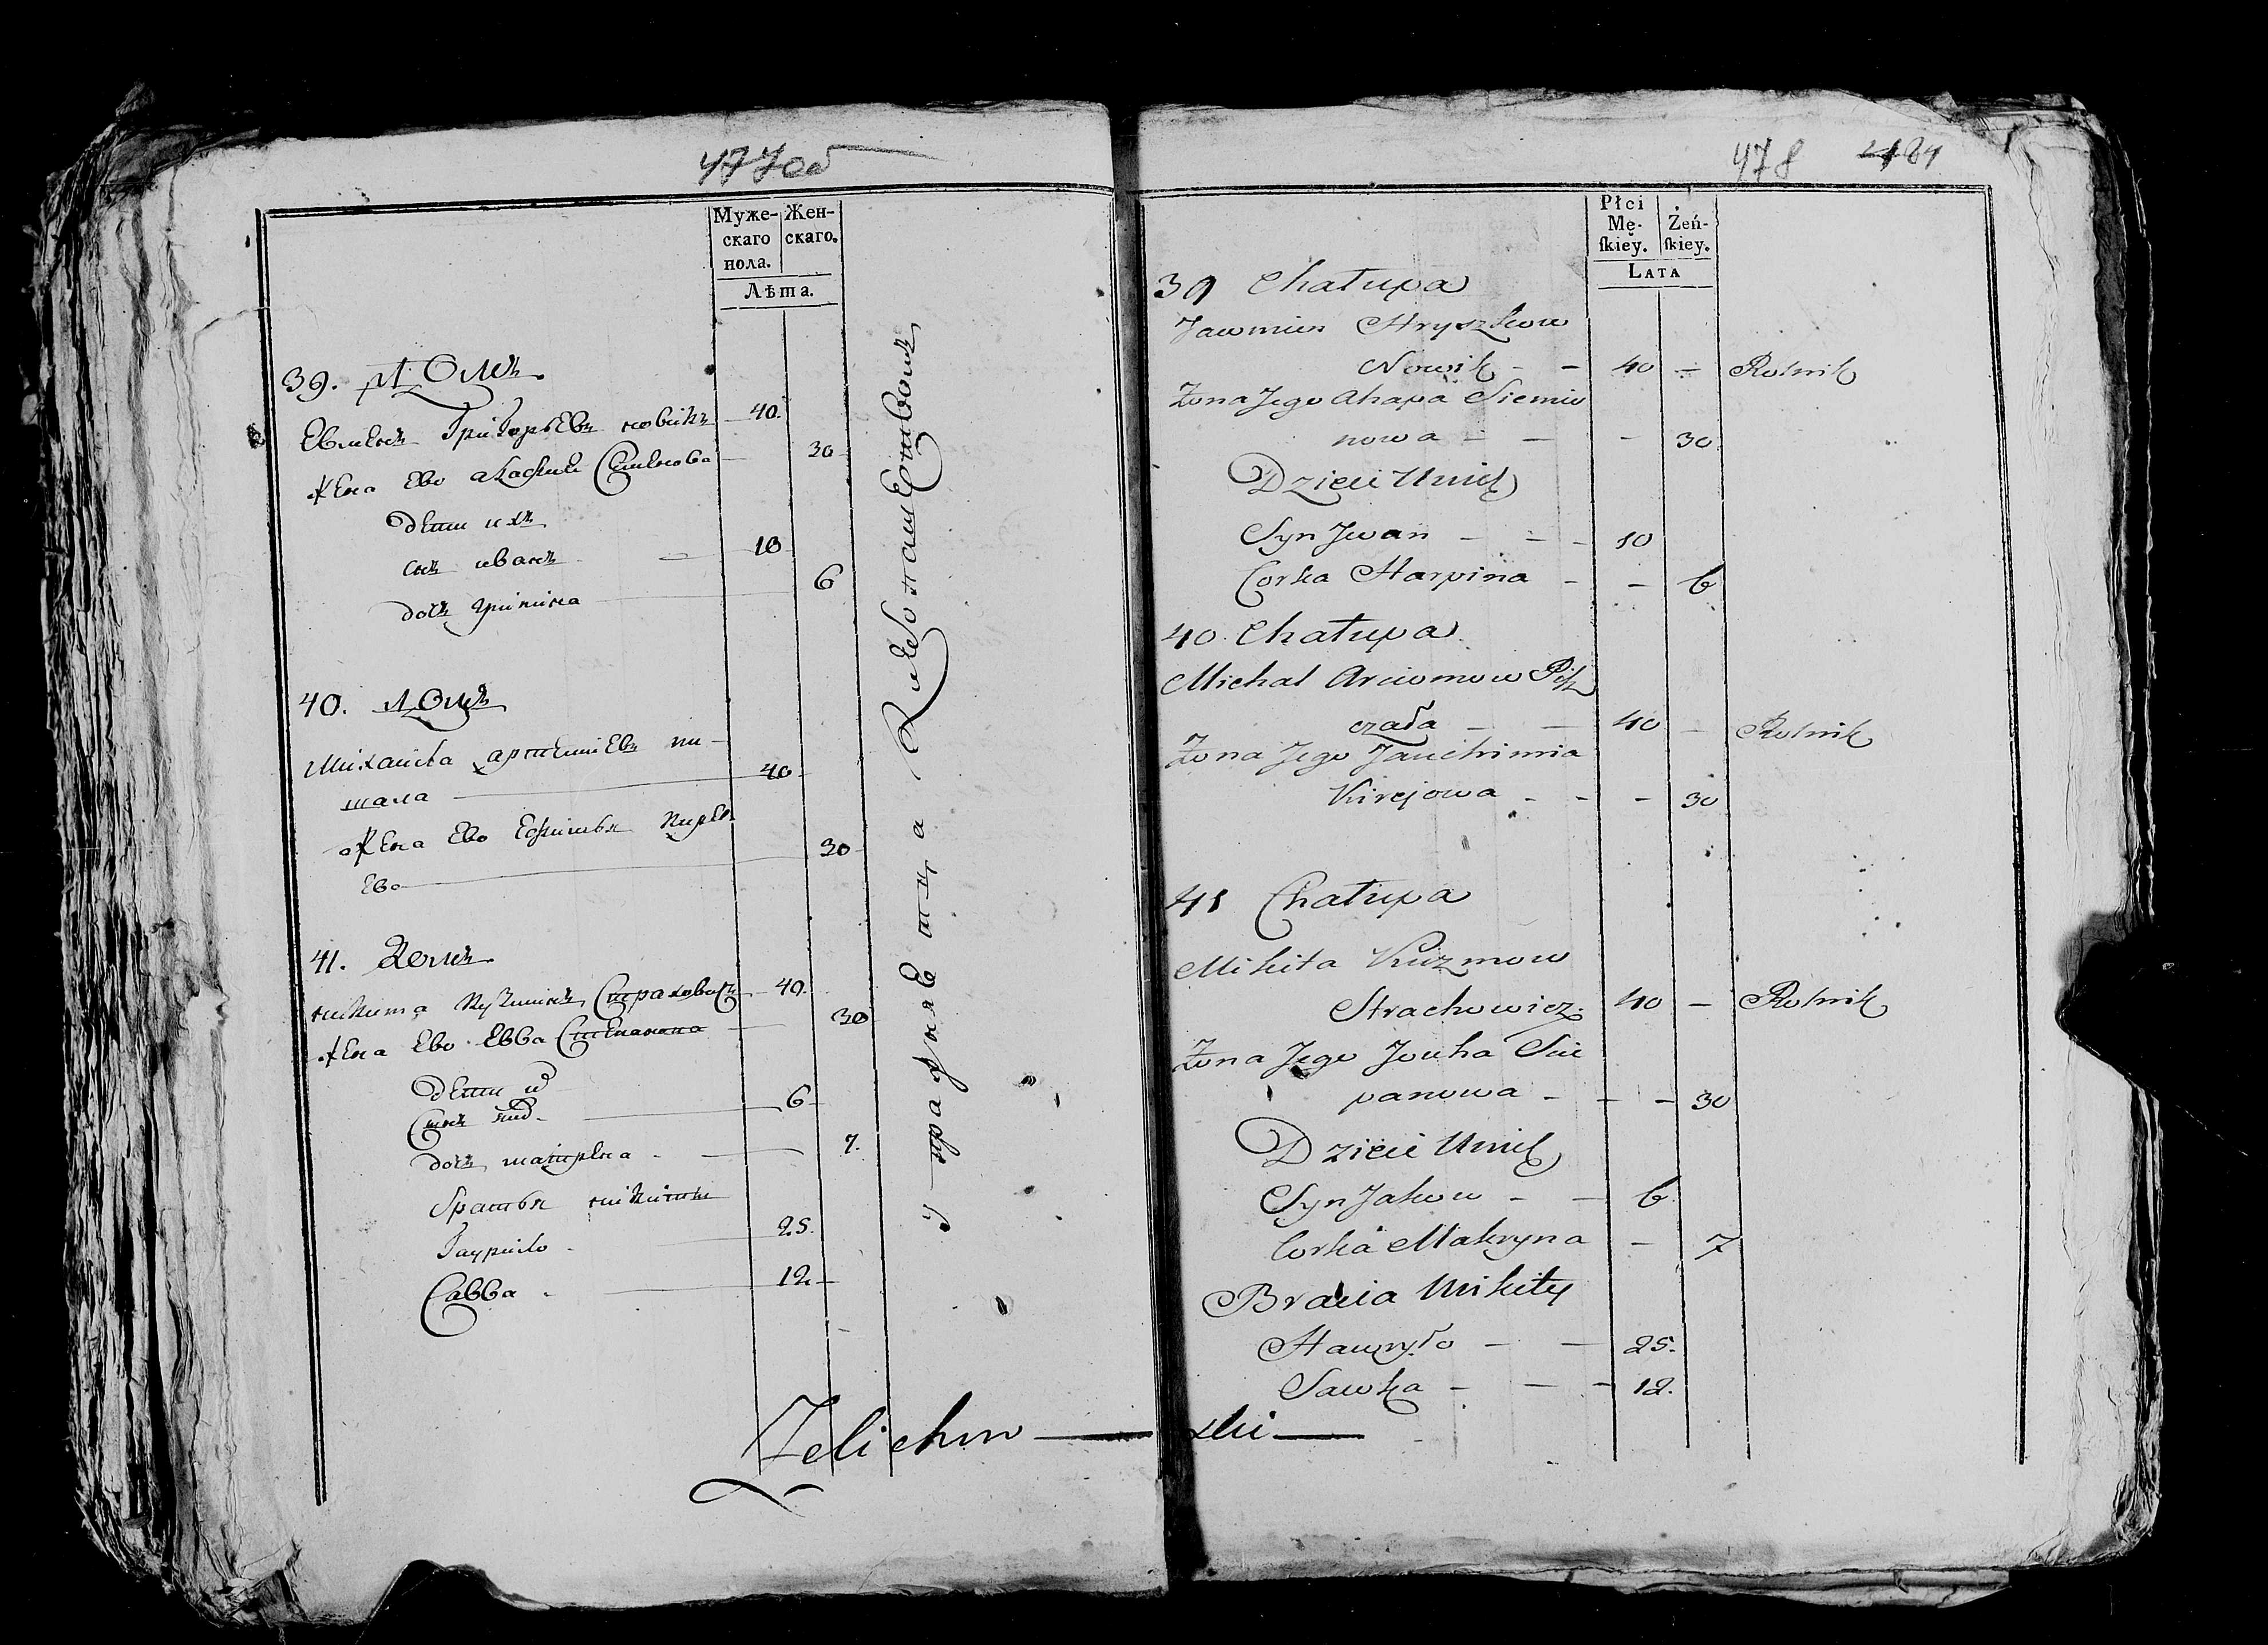 477об
Муже-
скаго
пола.
Жен-
скаго.
Лѣта.
39. Домъ
Евменъ Григорьевъ новикъ 40.
Жена Ево агафия Семенова 30
дети ихъ
сынъ иванъ 10
дочь 6
40. Домъ
Михайла артемиевъ пи-
щала 40
Жена Ево Ефимья Кирее
ева 30
41. Домъ
никита Кузминъ Страховичь 40.
Жена Ево Евва Степанова 30
дети их
6
дочь макрена 7.
братья никиты
Гаурило 25.
Савва 12
упражняв тца Хлебопашествомъ
Zelichow — ski —
478 484
Płci
Mę-
ſkiey.
Żeń-
ſkiey.
LATA
39 Chałupa
Jawmien Hryszkow
Nowik - - 40 - Rolnik
Żona Jego Ahapa Siemio
nowa - - - 30
Dzieci Unich
Syn Jwan - - - 10
Corka Harpina - - 6
40. Chałupa
Michał Arciomow Pisz
czała - - 40 - Rolnik
Żona Jego Jauchimia
Kirejowa - - - 30
41 Chałupa
Mikita Kuzmow
Strachowicz 40 - Rolnik
Żona Jego Jouha Scie
panowa - - - 30
Dzieci Unich
Syn Jakow - - 6
Corka Makryna - 7
Bracia Mikity
Hawryło - - 25.
Sawka - - - 12.